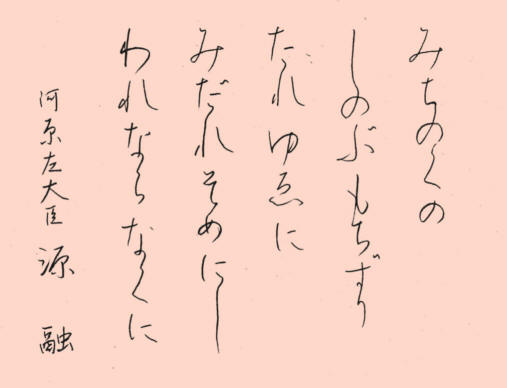 みちのくの
しのぶもちずり
たれゆゑに
みだれそめにし
われならなくに
河原左大臣 源 融